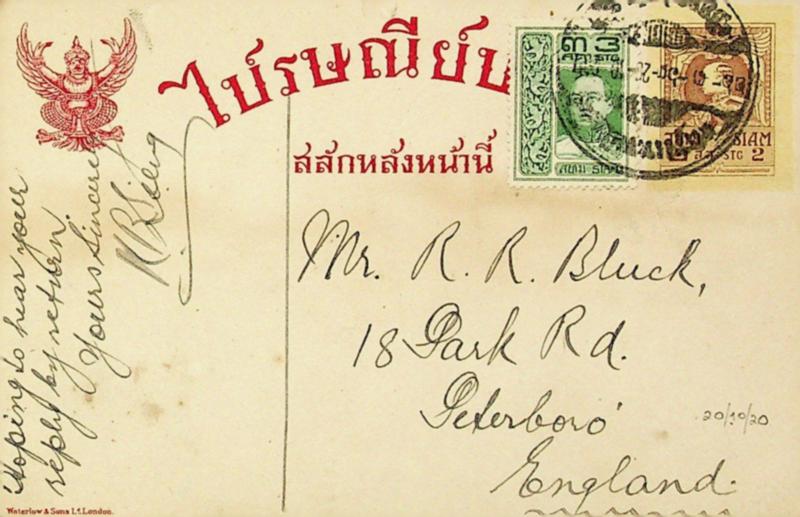 ไปรษณียบ
สลักหลังหน้านี้
๓ 3
สยาม SIAM
SIAM
2
Mr. R. R. Bluck,
18 Park Rd.
Peterboro'
England.
20/10/20
Hoping to hear your
reply by return.
Yours Sincere
Waterlow & Sons Ld. London.